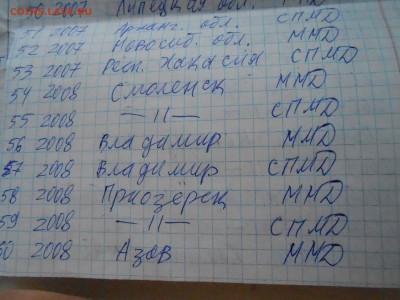 2007 Липецкая обл. ММД
51 2007 Арханг. обл. СПМД
52 2007 Новосиб. обл. ММД
53 2007 Респ. Хакасия СПМД
54 2008 Смоленск ММД
55 2008 —〃— СПМД
56 2008 Владимир ММД
57 2008 Владимир СПМД
58 2008 Приозёрск ММД
59 2008 —〃— СПМД
60 2008 Азов ММД